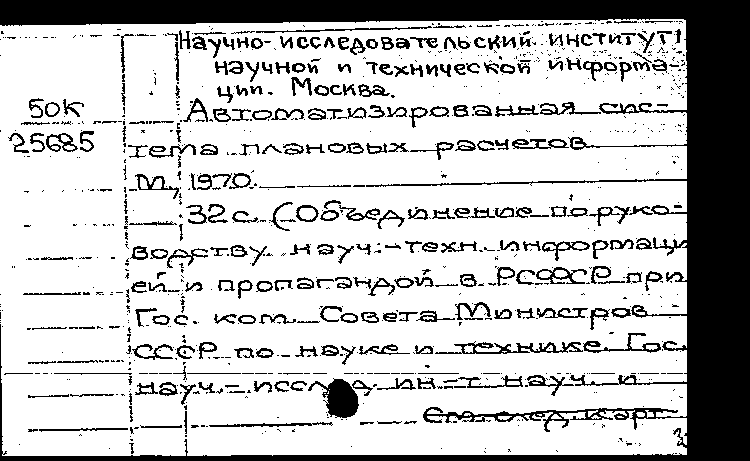 Научно-исследовательский институт
научной и технической информа-
ции. Москва.
50К
Автоматизированная сис-
25685
тема плановых расчетов
М., 1970.
32 с. (Объединение по руко-
водству науч.-техн. информаци
ей и пропагандой в РСФСР при
Гос. ком. Совета Министров
СССР по науке и технике. Гос.
науч.-исслед. ин-т науч. и
См. след. карт